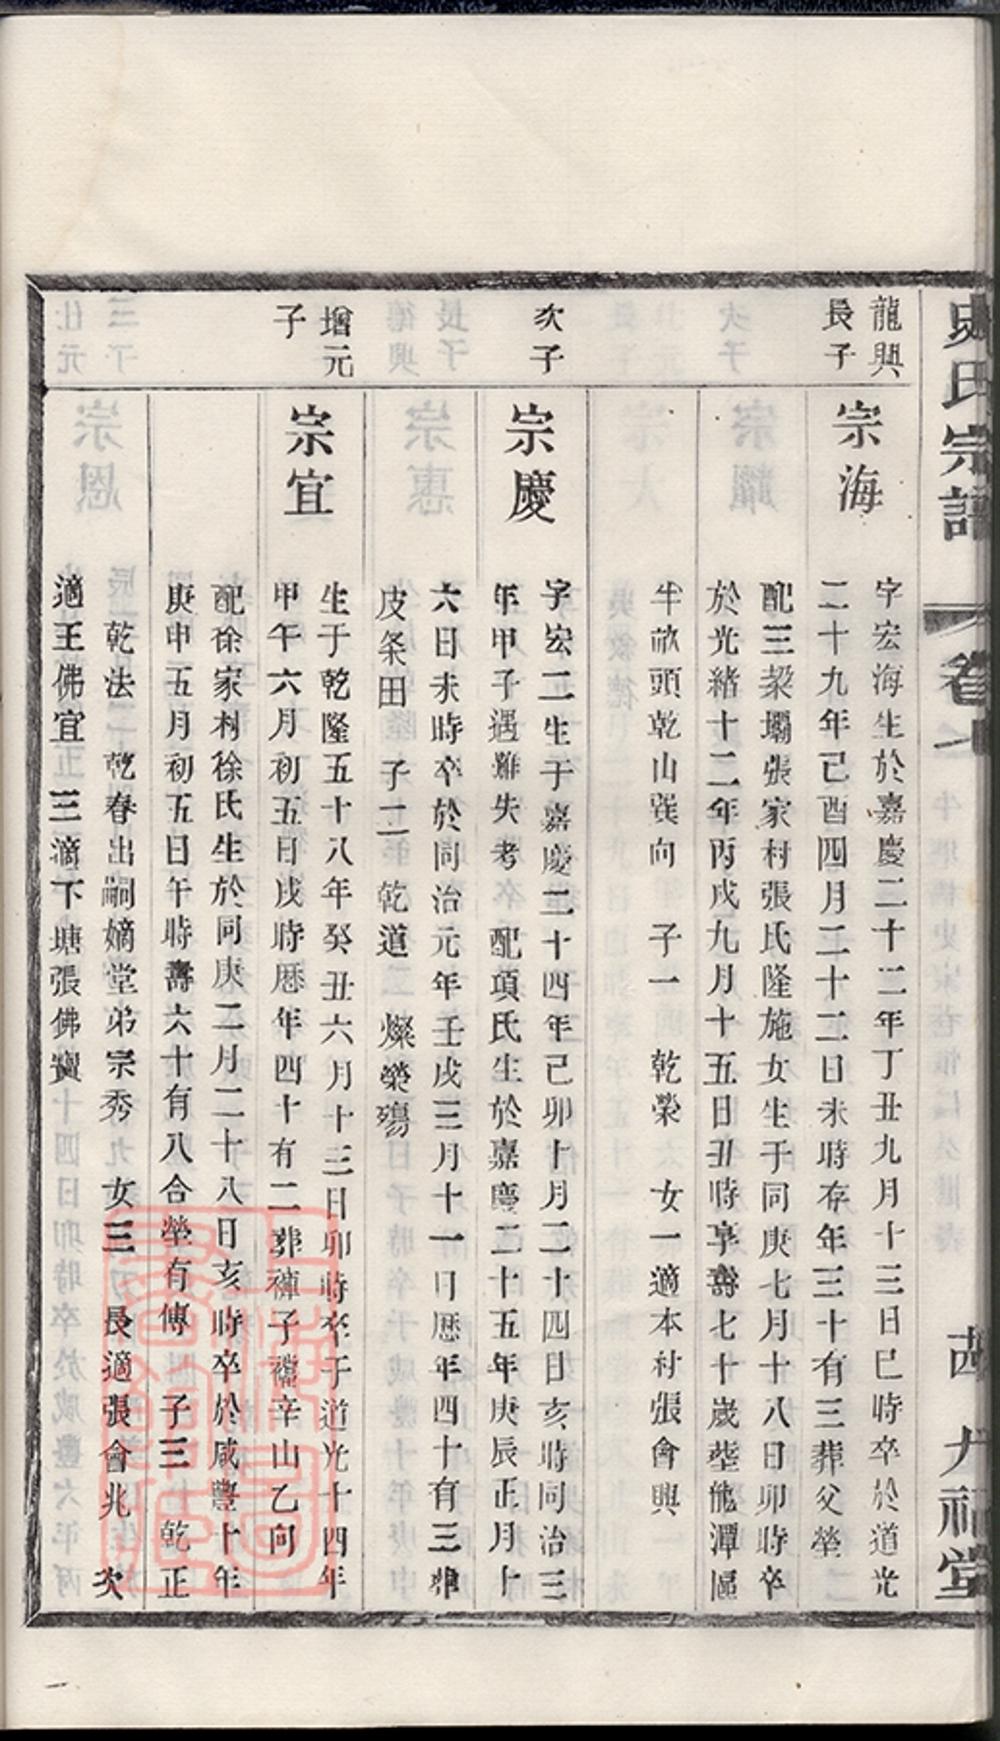 史氏宗譜 卷七
龍興
長子
宗海
字宏海生於嘉慶二十二年丁丑九月十三日巳時卒於道光
二十九年己酉四月二十二日未時存年三十有三葬父塋
配三梁壩張家村張氏隆施女生于同庚七月十八日卯時卒
於光緒十二年丙戍九月十五日丑時享壽七十歲塟他潭區
半畝頭乾山巽向 子一 乾榮 女一適本村張會興
次子
宗慶
字宏二生于嘉慶二十四年己卯十月二十四日亥時同治三
年甲子遇難失考 配項氏生於嘉慶二十五年庚辰正月十
六日未時卒於同治元年壬戌三月十一日歷年四十有三葬
皮条田 子二 乾道 燦榮殤
增元
子
宗宜
生于乾隆五十八年癸丑六月十三日卯時卒于道光十四年
甲午六月初五日戌時歷年四十有二葬 子 辛山乙向
配徐家村徐氏生於同庚二月二十八日亥時卒於咸豐十年
庚申五月初五日午時壽六十有八合塋有傳 子三 乾正
乾法 乾春出嗣嫡堂弟宗秀 女三 長適張會兆 次
適王佛宜 三適下塘張佛寶